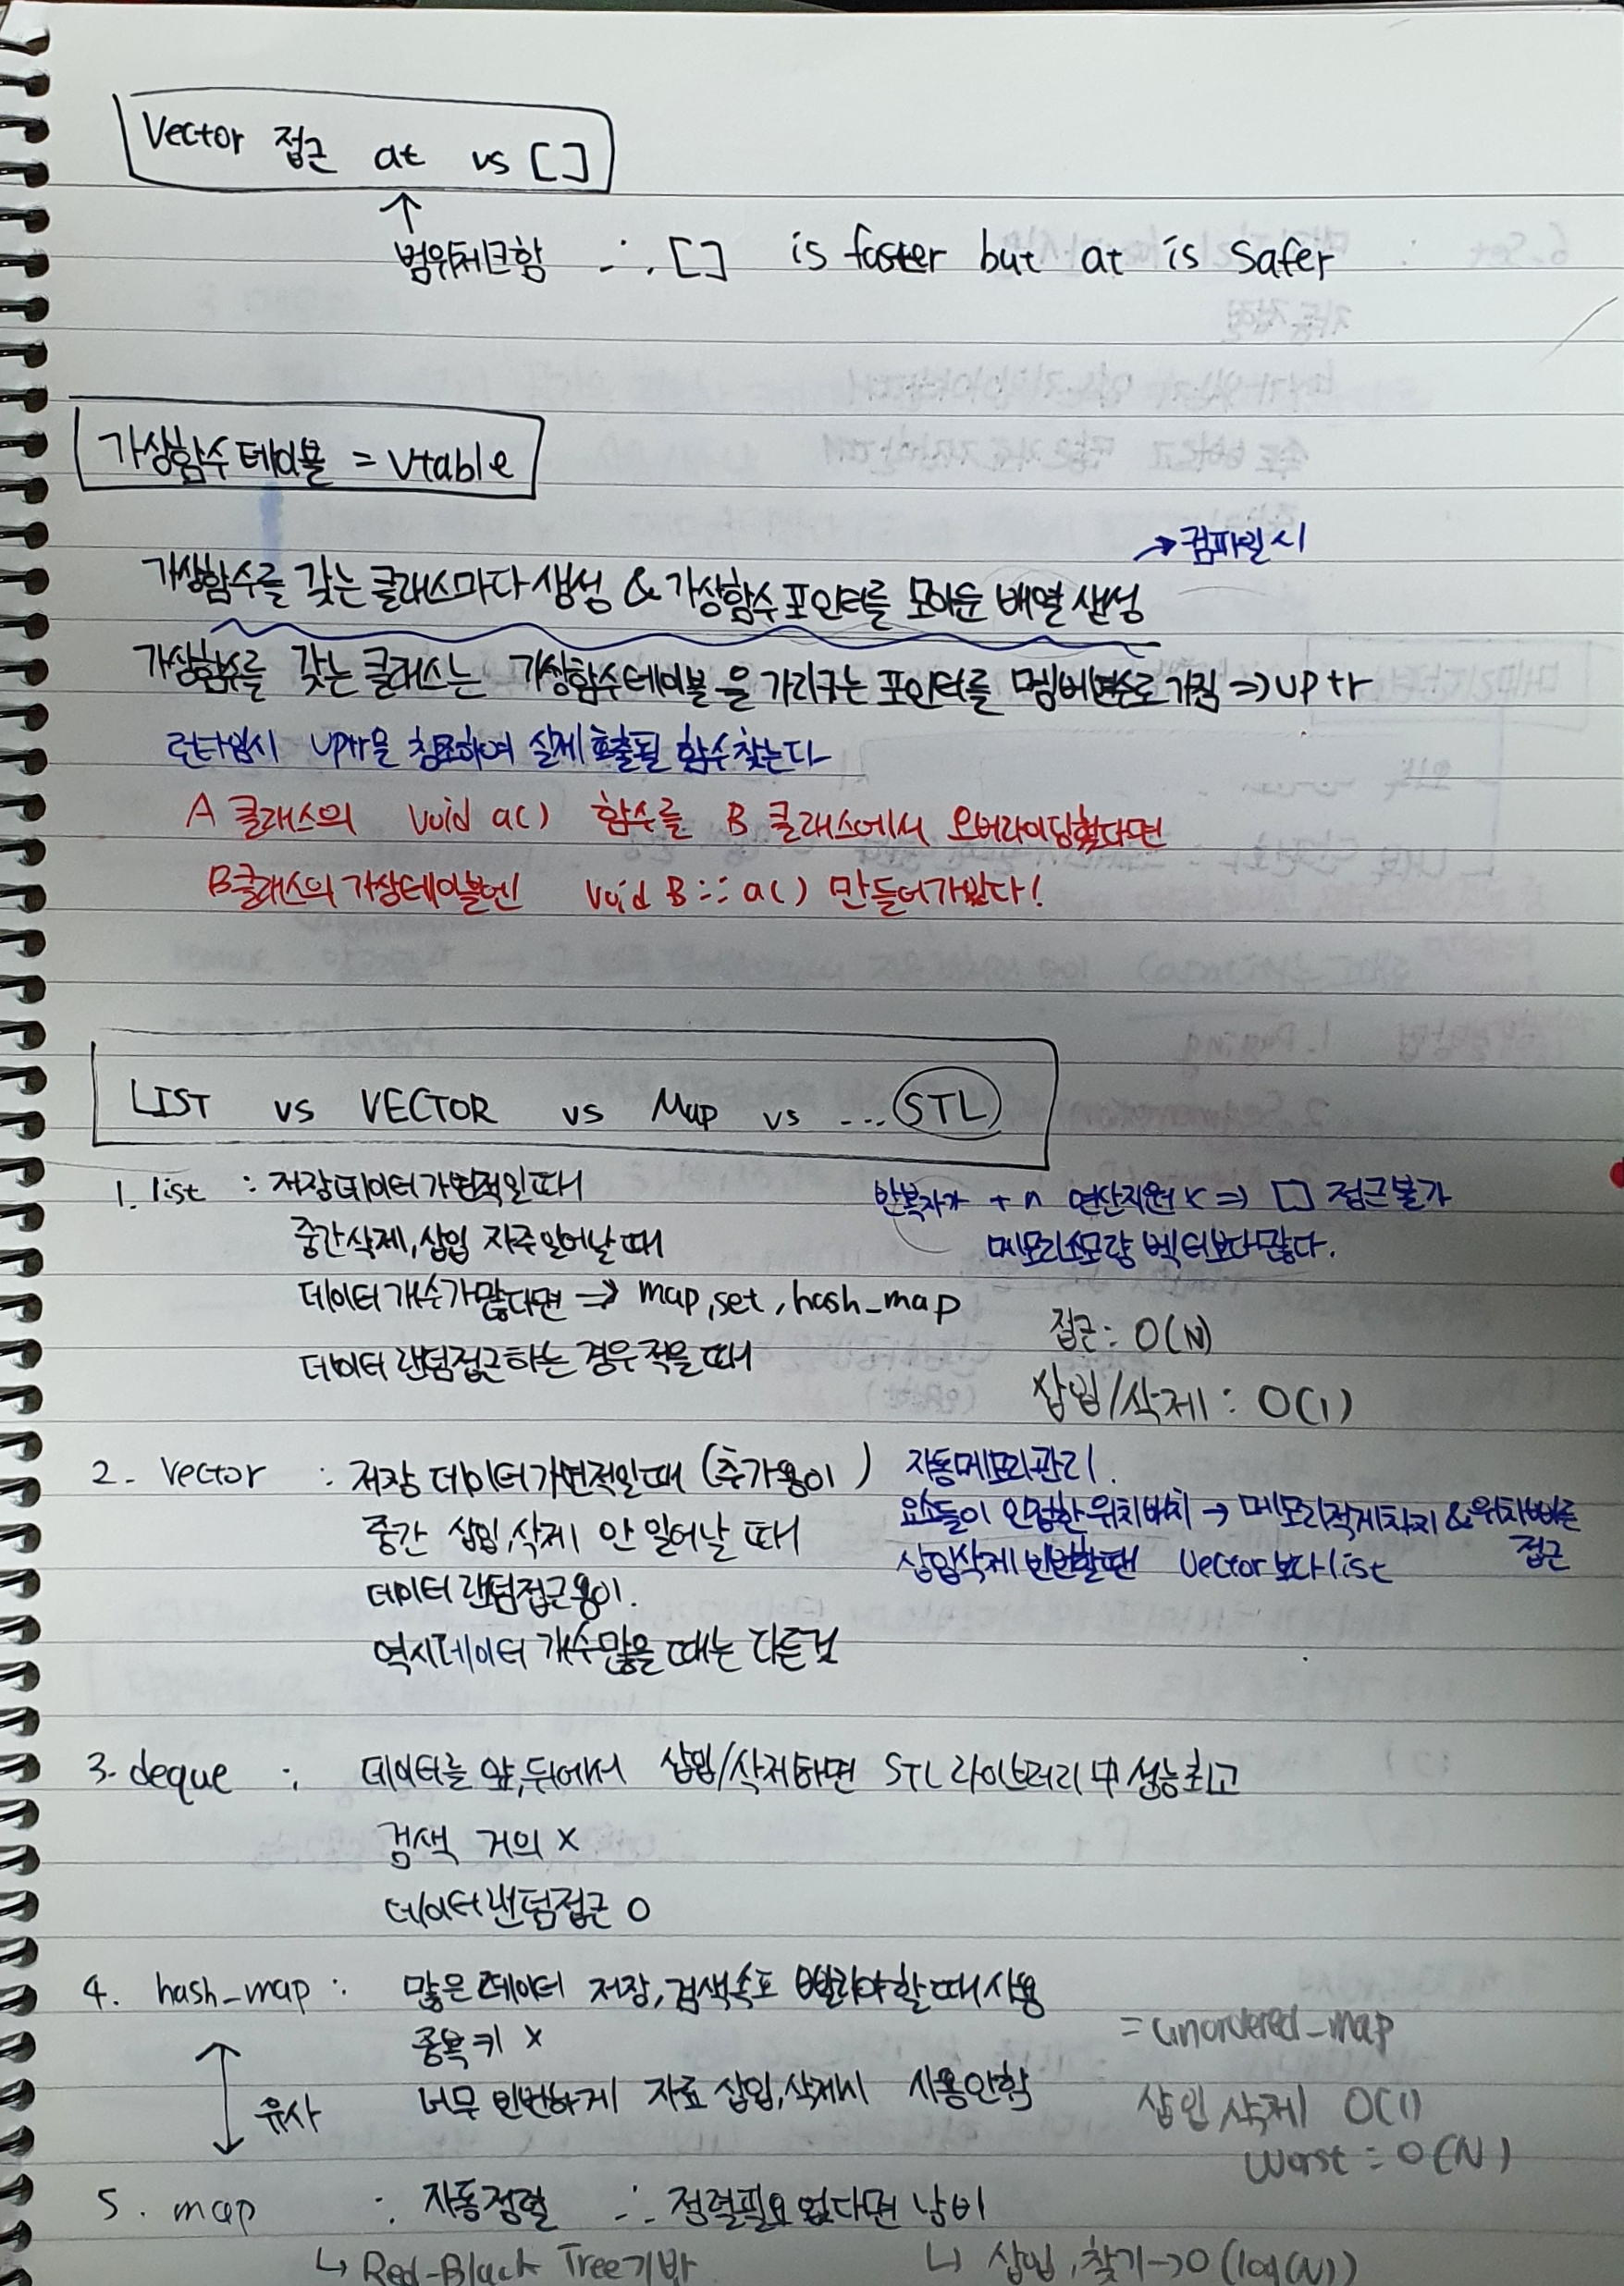 Vector 접근 at vs []
↑
범위체크함 ∴ [] is faster but at is safer
가상함수 테이블 = Vtable
→ 컴파일시
가상함수를 갖는 클래스마다 생성 & 가상함수 포인터를 모아둔 배열 생성
가상함수를 갖는 클래스는 가상함수테이블을 가리키는 포인터를 멤버변수로 가짐 ⇒ vptr
런타임시 vptr을 참조하여 실제 호출될 함수 찾는다
A 클래스의 void a() 함수를 B 클래스에서 오버라이딩했다면
B클래스의 가상테이블엔 void B::a() 만 들어가있다!
LIST vs VECTOR vs Map vs ... STL
1. list : 저장데이터 가변적인때
중간삭제, 삽입 자주 일어날 때
데이터 개수가많다면 ⇒ map, set, hash_map
데이터 랜덤접근하는 경우 적을때
반복자가 +n 연산지원 x ⇒ [] 접근불가
메모리소모량 벡터보다많다.
접근: O(N)
삽입/삭제: O(1)
2. Vector : 저장 데이터 가변적일때 (추가용이)
중간 삽입, 삭제 안 일어날 때
데이터 랜덤접근용이.
역시데이터 개수많을 때는 다른것
자동메모리관리.
요소들이 인접한 위치배치 → 메모리적게차지 & 위치빠른
접근
삽입삭제 빈번할땐 Vector보다 list
3. deque : 데이터를 앞,뒤에서 삽입/삭제하면 STL 라이브러리 中 성능최고
검색 거의 x
데이터랜덤접근 O
4. hash_map : 많은 데이터 저장, 검색속도 빨라야 할때 사용
중복 키 x
너무 빈번하게 자료 삽입, 삭제시 사용안함
= unordered_map
삽입 삭제 O(1)
worst = O(N)
↕ 유사
5. map : 자동정렬 ∴ 정렬필요 없다면 낭비
↳ Red-Black Tree기반 ↳ 삽입, 찾기→O(log(N))